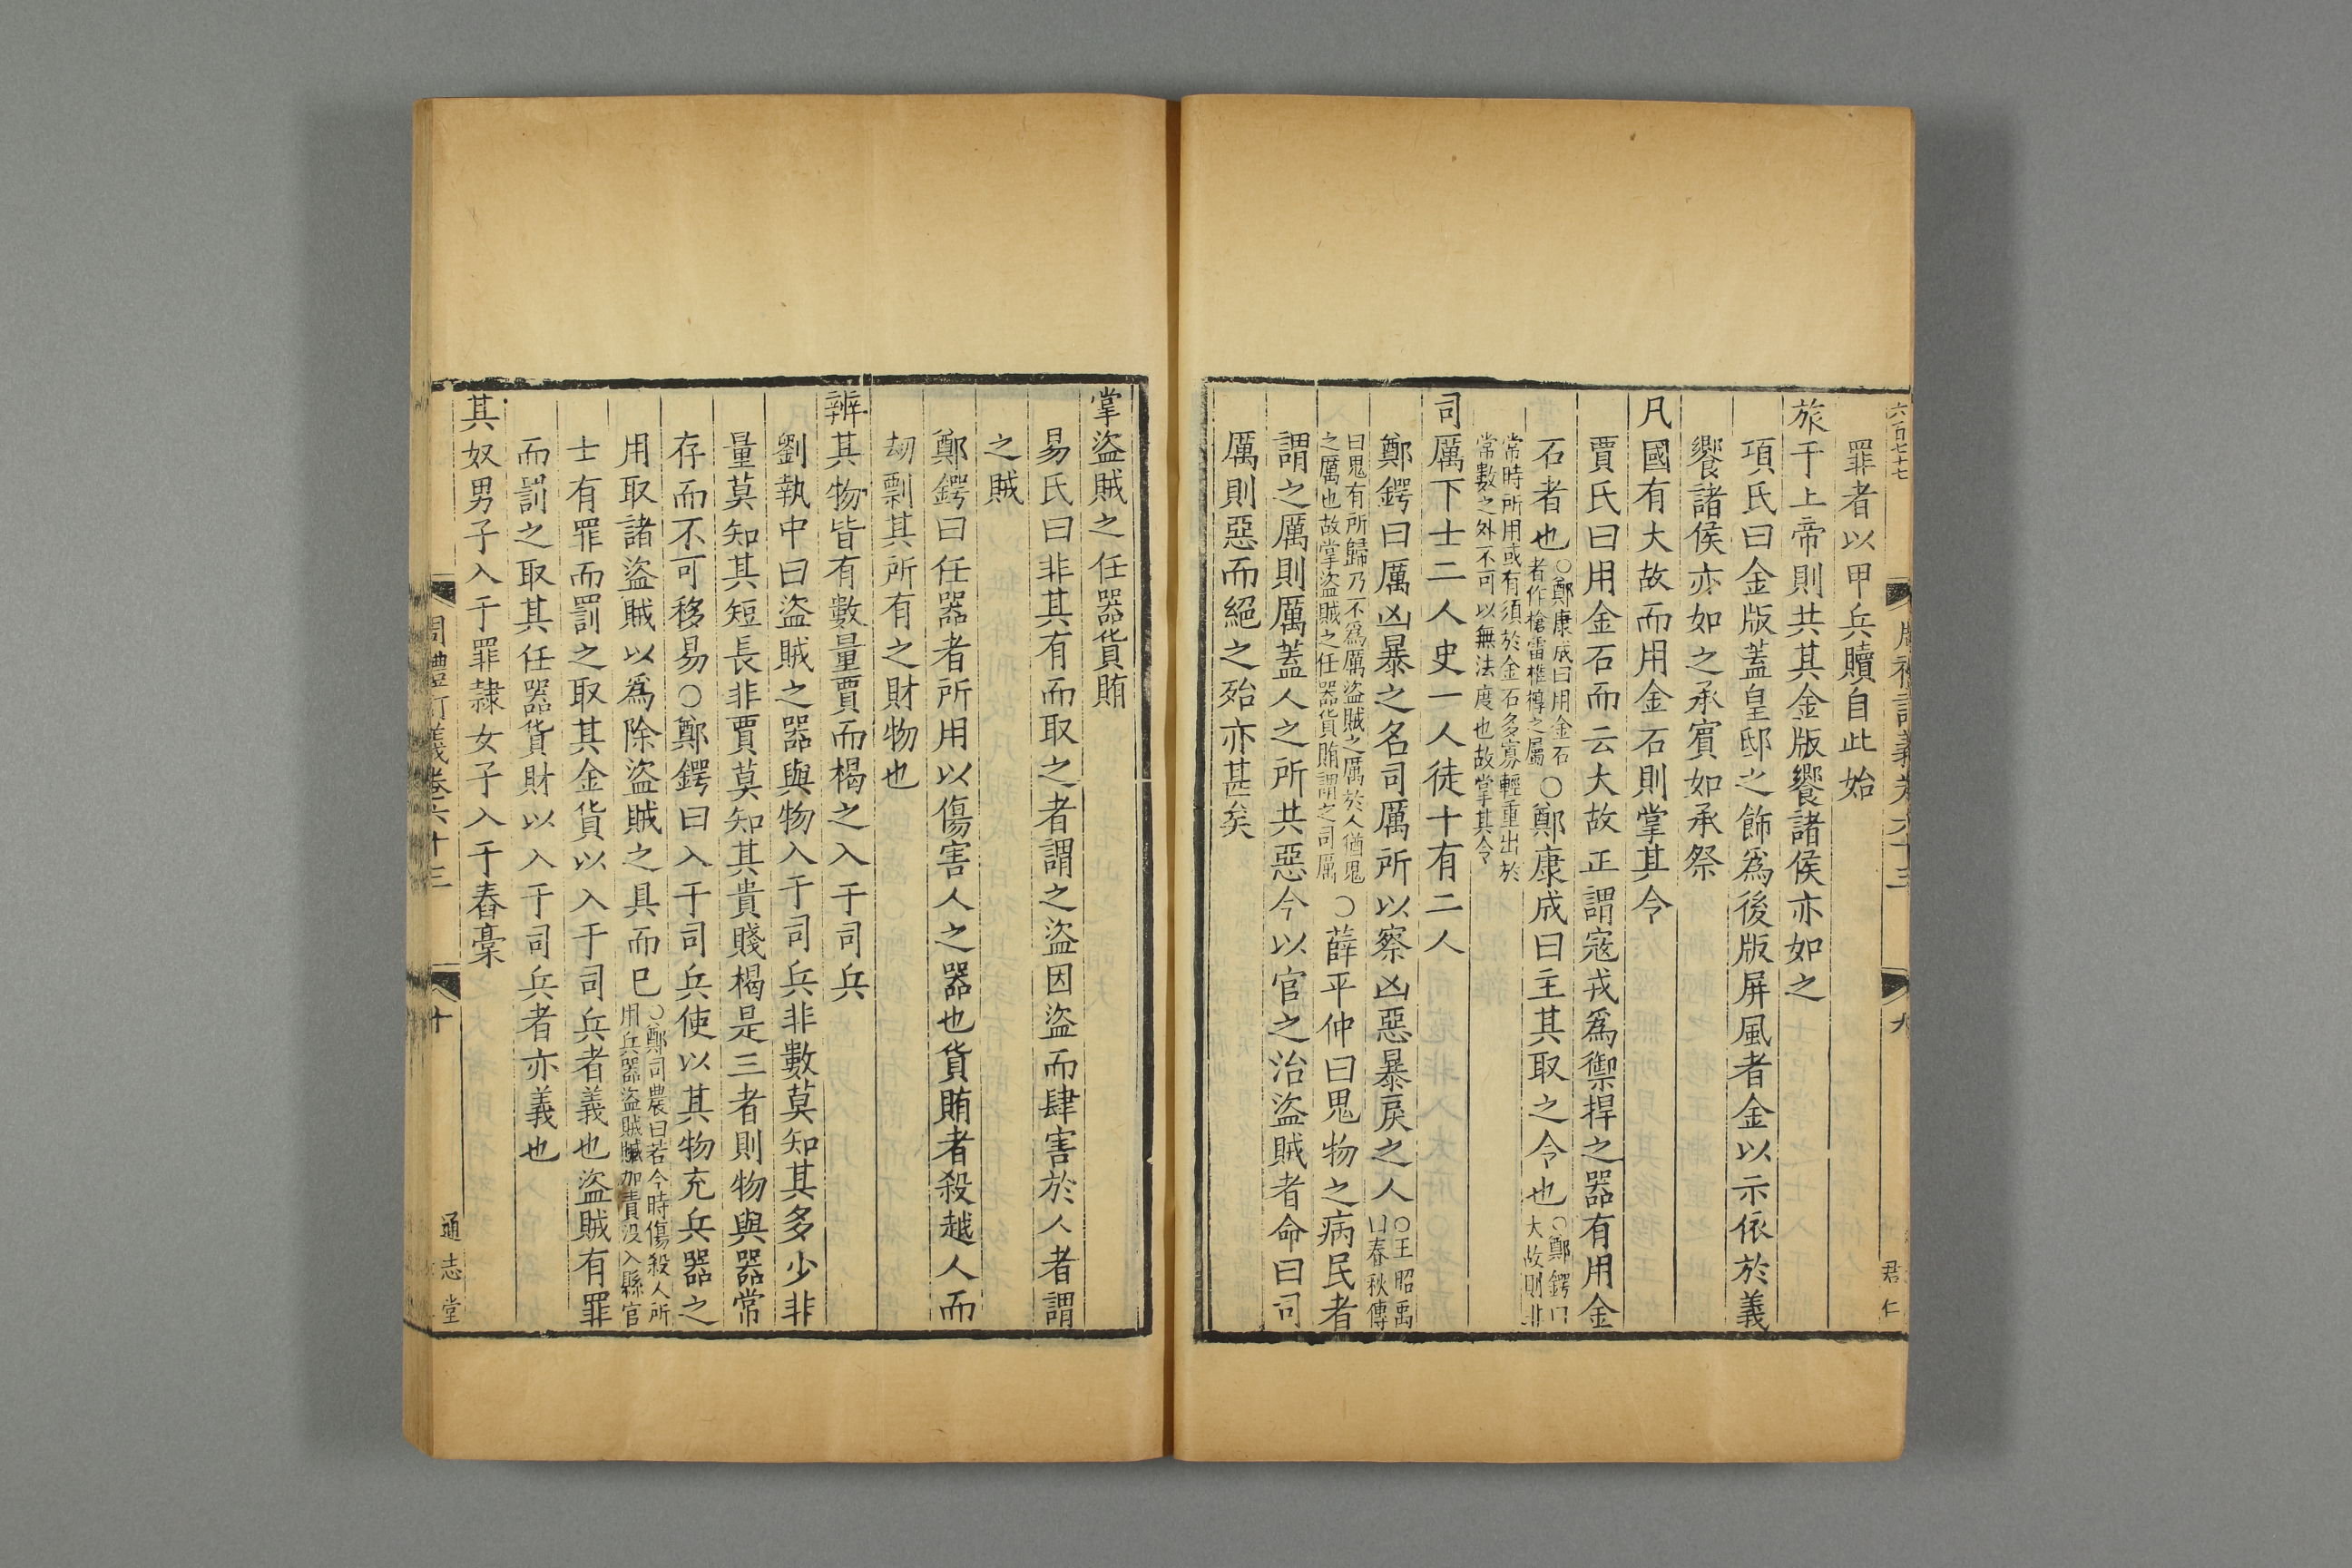 六百七十七
周禮訂義卷六十三
九
君仁
罪者以甲兵贖自此始
旅于上帝則共其金版饗諸侯亦如之
項氏曰金版蓋皇邸之飾爲後版屏風者金以示依於義
饗諸侯亦如之承賓如承祭
凡國有大故而用金石則掌其令
賈氏曰用金石而云大故正謂寇戎爲禦捍之器有用金
石者也○鄭康成曰用金石者作槍雷椎椁之屬○鄭康成曰主其取之令也○鄭鍔曰大故則非
常時所用或有須於金石多寡輕重出於
常數之外不可以無法度也故掌其令
司厲下士二人史一人徒十有二人
鄭鍔曰厲凶暴之名司厲所以察凶惡暴戾之人○王昭禹曰春秋傳
曰鬼有所歸乃不爲厲盜賊之厲於人猶鬼之厲也故掌盜賊之任器貨賄謂之司厲○薛平仲曰鬼物之病民者
謂之厲則厲蓋人之所共惡今以官之治盜賊者命曰司
厲則惡而絕之殆亦甚矣
掌盜賊之任器貨賄
易氏曰非其有而取之者謂之盜因盜而肆害於人者謂
之賊
鄭鍔曰任器者所用以傷害人之器也貨賄者殺越人而
刼剽其所有之財物也
辨其物皆有數量賈而楬之入于司兵
劉執中曰盜賊之器與物入于司兵非數莫知其多少非
量莫知其短長非賈莫知其貴賤楬是三者則物與器常
存而不可移易○鄭鍔曰入于司兵使以其物充兵器之
用取諸盜賊以爲除盜賊之具而巳○鄭司農曰若今時傷殺人所用兵器盜賊贓加責沒入縣官
士有罪而罰之取其金貨以入于司兵者義也盜賊有罪
而罰之取其任器貨財以入于司兵者亦義也
其奴男子入于罪隸女子入于舂槀
周禮訂義卷六十三
十
通志堂